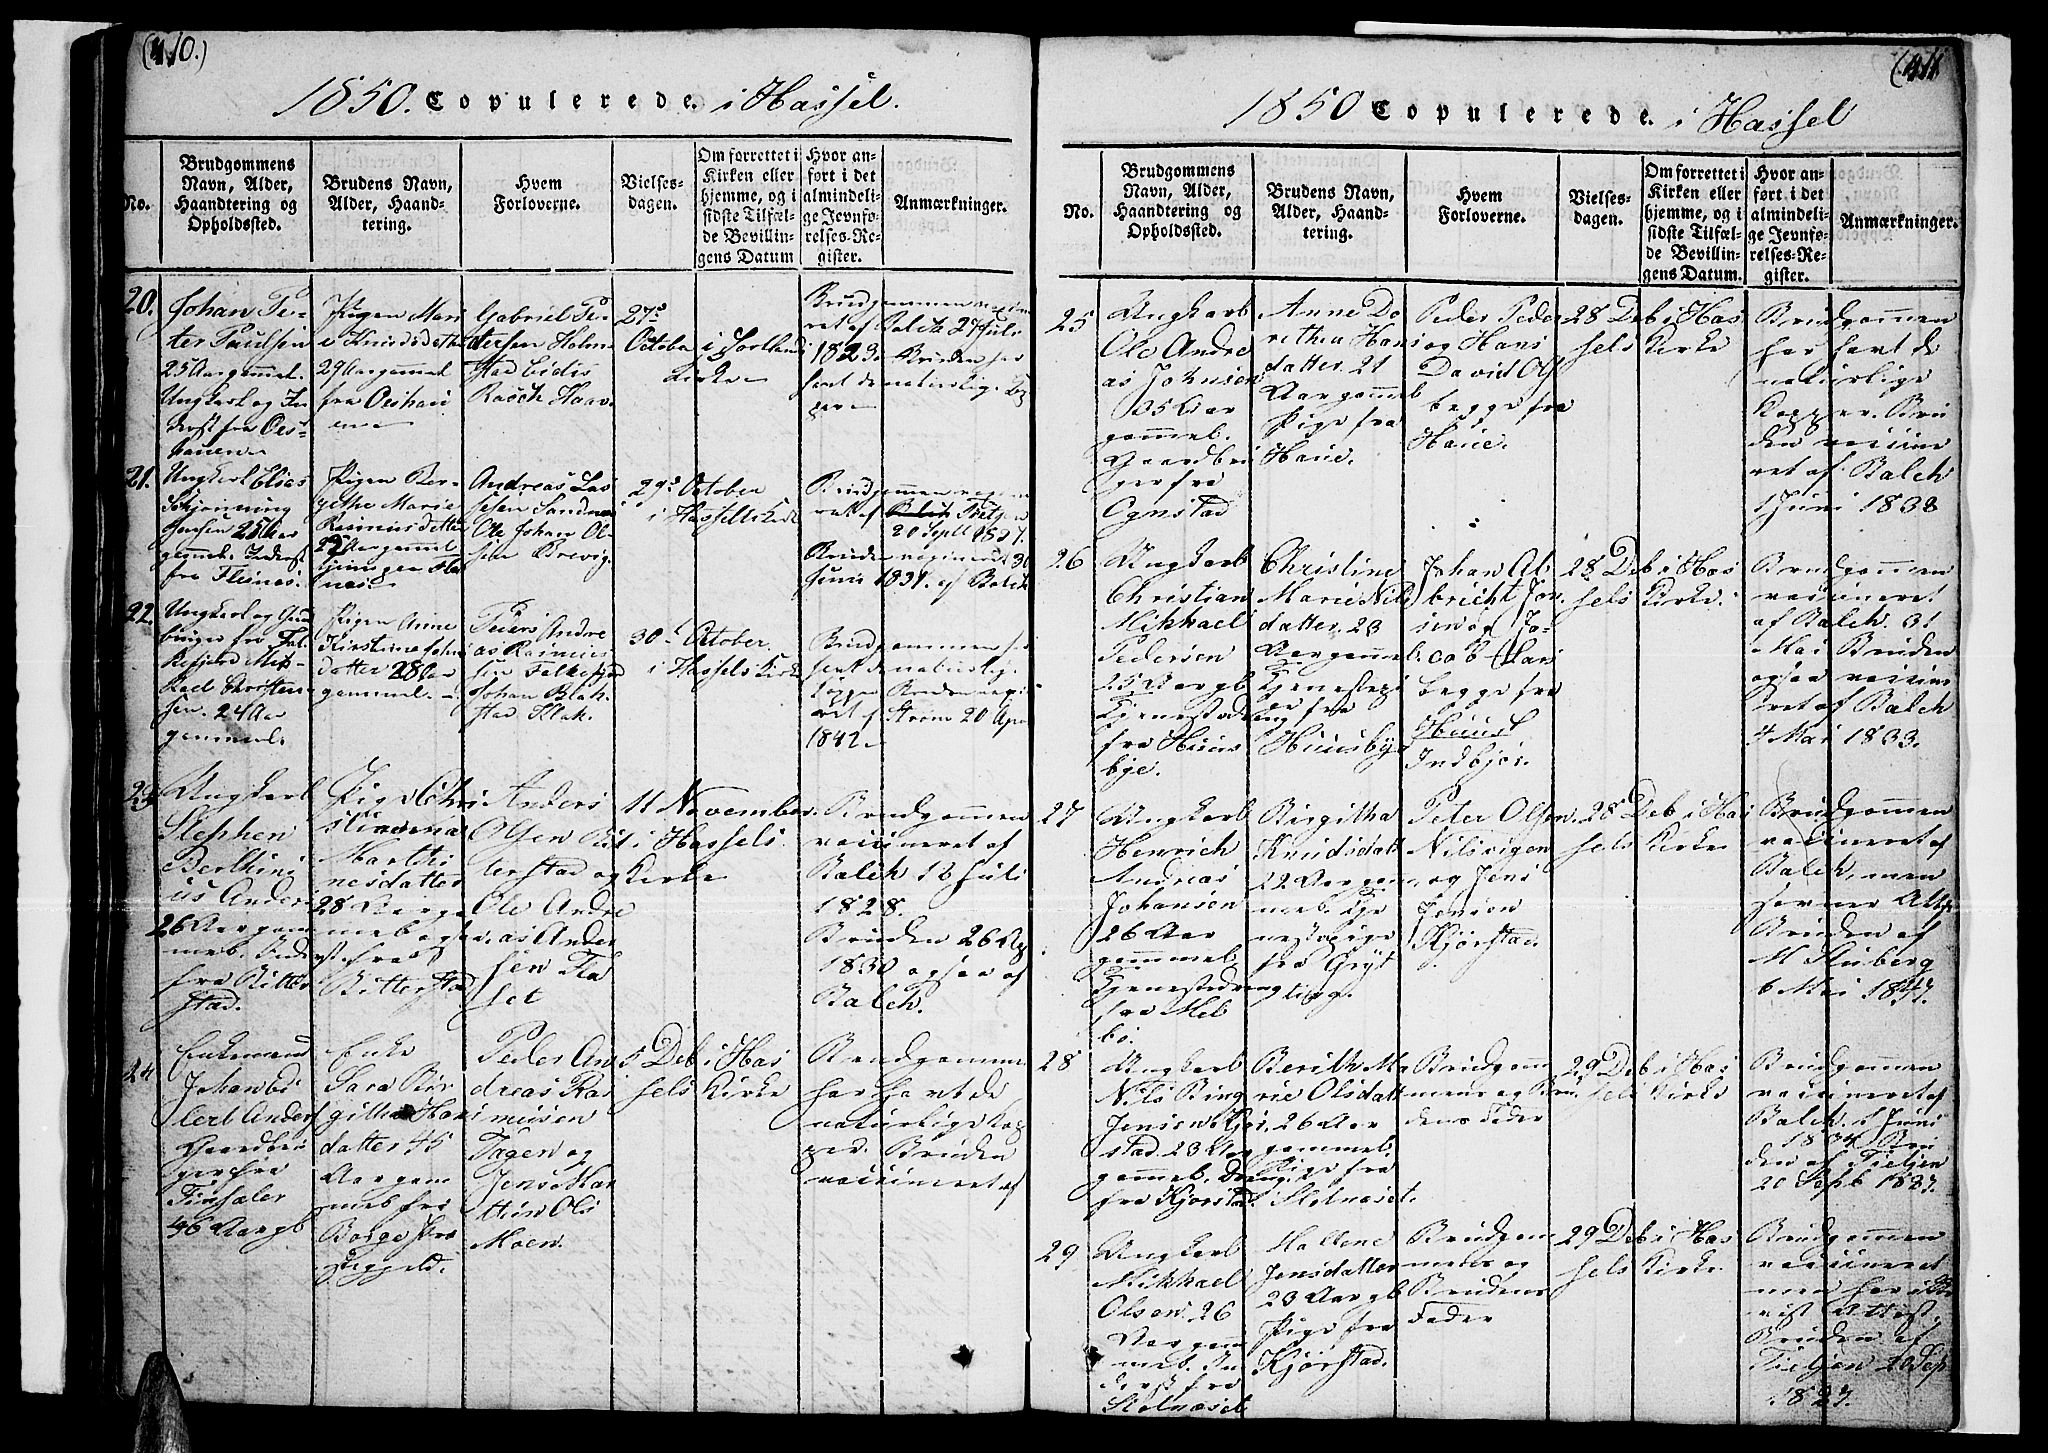 (410.)
1850. Copulerede. i Hassel.
No.
Brudgommens
Navn, Alder,
Haandtering og
Opholdssted.
Brudens Navn,
Alder, Haand-
tering.
Hvem
Forloverne.
Vielses-
dagen.
Om forrettet i
Kirken eller
hjemme, og i
sidste Tilfæl-
de Bevillin-
gens Datum
Hvor an-
ført i det
almindeli-
ge Jevnfø-
relses-Re-
gister.
Anmærkninger.
20.
Johan Pe-
ter Paulsen
25 Aar gammel.
Ungkarl og In-
derst fra
Pigen Mari
e Knudsdatter
29 Aar gammel
fra
Gabriel Pe-
dersen Holm-
stad
Rasch
27de
October i
Kirke
Brudgommen
ret af Balch 27 Juli
1823. Bruden har
havt de naturlig. Kop
per
21.
Ungkarl Elias
Schjønning
Jensen 25 Aar
gammel. Inderst
fra
Pigen Ber-
gethe Marie
Rasmusdatter
Aar gammel
Andreas Las
sesen Sandnes
Ole Johan Ol-
sen Brevig.
29de October
i Hassels Kirke
Brudgommen
ret af
20 Sept 1827.
Bruden vaccineret 30
Juni 1831. af Balch
22.
Ungkarl og Gaard
bruger fra
Mik-
kael Christen
sen. 24 Aar
gammel.
Pigen Anne
Kirstine
datter 28 Aar
gammel.
Peder Andre
as Rasmus
sen
Johan
stad
30te October
i Hassels Kirke
Brudgommen har
havt de naturlig.
Kopper Bruden
ret af Strøm 20 Apr
1842
23
Ungkarl
Stephen
Berthini
us Anders
26 Aar gam
mel. Inderst
fra Bitter
stad.
Pige Chri
Marthi
nusdatter
28 Aar ga
mel
fra
Bitterstad
Anders
Olsen Bit
terstad og
Ole Andre
as Ander
sen Fla
set
11 November
i Hassels
Kirke
Brudgommen
vaccineret af
Balch 12 Juli
1828.
Bruden 26 Ap
1830 ogsaa af
Balch.
24
Enkemand
Johan
Anders
Gaardbru
ger fra
46 Aar gl
Enke
Sara Bir
githa Hans
datter 45
Aar gam
mel fra
Borge Præ
stegjeld.
Peder An
dreas Ras
musen
og
Jens Mar
thin Ols
Moen.
5 Deb i Has
sels Kirke
Brudgommen
har havt de
naturlige Kop
per. Bruden
vaccineret af
(411
1850 Copulerede. i Hassel
No.
Brudgommens
Navn, Alder,
Haandtering og
Opholdssted.
Brudens Navn,
Alder, Haand-
tering.
Hvem
Forloverne.
Vielses-
dagen.
Om forrettet i
Kirken eller
hjemme, og i
sidste Tilfæl-
de Bevillin-
gens Datum.
Hvor an-
ført i det
almindeli-
ge Jevnfø-
relses-Re-
gister.
Anmærkninger.
25
Ungkarl
Ole Andre
as Johnsen
Aar
gammel.
Gaardbru
ger fra
Ognstad
Anne Do
rethea Hans
datter 21
Aar gammel
Pige fra
Haue.
Peder Peder
og Hans
David Ols
begge fra
Haue.
28 Deb i Has
sels Kirke
Brudgommen
har havt de
naturlige
Kopper. Bru
den vaccine
ret af Balch
1 Juni 1838
26
Ungkarl
Christian
Mikkael
Pedersen
25 Aar gl
Tjenestedreng
fra Huus
bye.
Christine
Marie Nils
datter 23
Aar gammel
Tjenestepi
ge fra
Huusbye
Johan Al
bricht Jon
sen og Ja-
cob Hans
begge fra
Huus
Indbjor.
28 Deb i Has
sels Kirke.
Brudgommen
vaccineret
af Balch. 31
Mai Bruden
ogsaa vaccine
ret af Balch
4 Mai 1833.
27
Ungkarl
Henrich
Andreas
Johansen
26 Aar
gammel
Tjenestedreng
fra Mel
bo.
Birgitha
Knudsdatt
22 Aar gam
mel. Tje
nestepige
fra Gryt
ting.
Peter Olsen
Nilsvigen
og Jens
Jensen
Kjørstad.
28 Deb i Has
sels Kirke
Brudgommen
vaccineret af
Balch, men
savner Att
Bruden af
M Stuberg
6 Mai 1837.
28
Ungkarl
Nils Bing
Jensen Kjør
stad 23 Aar
gammel. Dreng
fra Kjørstad
Berith Ma
rie Olsdatt
26 Aar
gammel.
Pige fra
Stolnæset.
Brudgom
mens og Bru
dens Fader
29 Deb i Has
sels Kirke
Brudgommen
vaccineret af
Balch. 1 Juni
1834 Bru
den af Tietjen
20 Septb 1827.
29
Ungkarl
Mikkael
Olsen 26
Aar gam
mel. In
derst fra
Stolnæset
Hallene
Jensdatter
23 Aar gl
Pige fra
Kjørstad.
Brudgom
mens og
Brudens
Fader
29 Deb i Has
sels Kirke
Brudgommen
vaccineret
men har ikke
vist Attest.
Bruden af
Tietjen 20 Sep
1827.